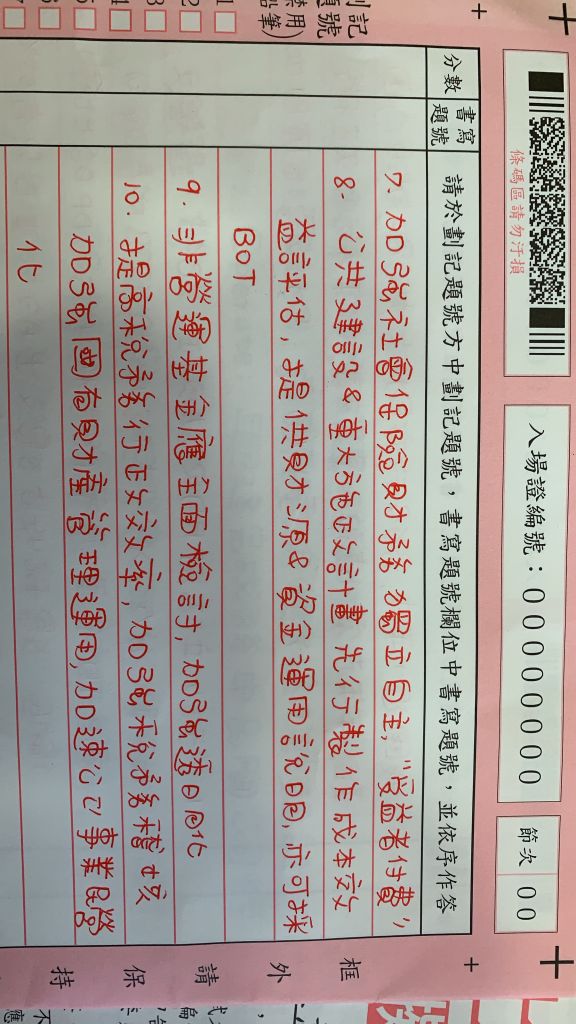 條碼區請勿汙損
入場證編號：0000000000
節次 00
分數
書寫題號
請於劃記題號方中劃記題號，書寫題號欄位中書寫題號，並依序作答
7. 加強社會保險財務獨立自主，"受益者付費"
8. 公共建設&重大施政計畫先行製作成本效
益評估，提供財源&資金運用說明，亦可採
BOT
9. 非營運基金應全面檢討，加強透明化
10. 提高稅務行政效率，加強稅務稽核
加強國有財產管理運用，加速公已事業民營
化
框
外
請
保
持